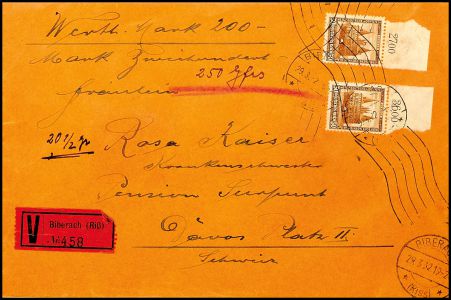 Werth: Mark 200-
Mark Zweihundert
250 Ffrs
Fräulein
20 1/2 gr
Rosa Kaiser
Krankenschwester
Pension
Davos Platz II.
Schweiz
V
Biberach (Riß)
458
2,00
BIBERA
29.3.32.19-2
(RISS)